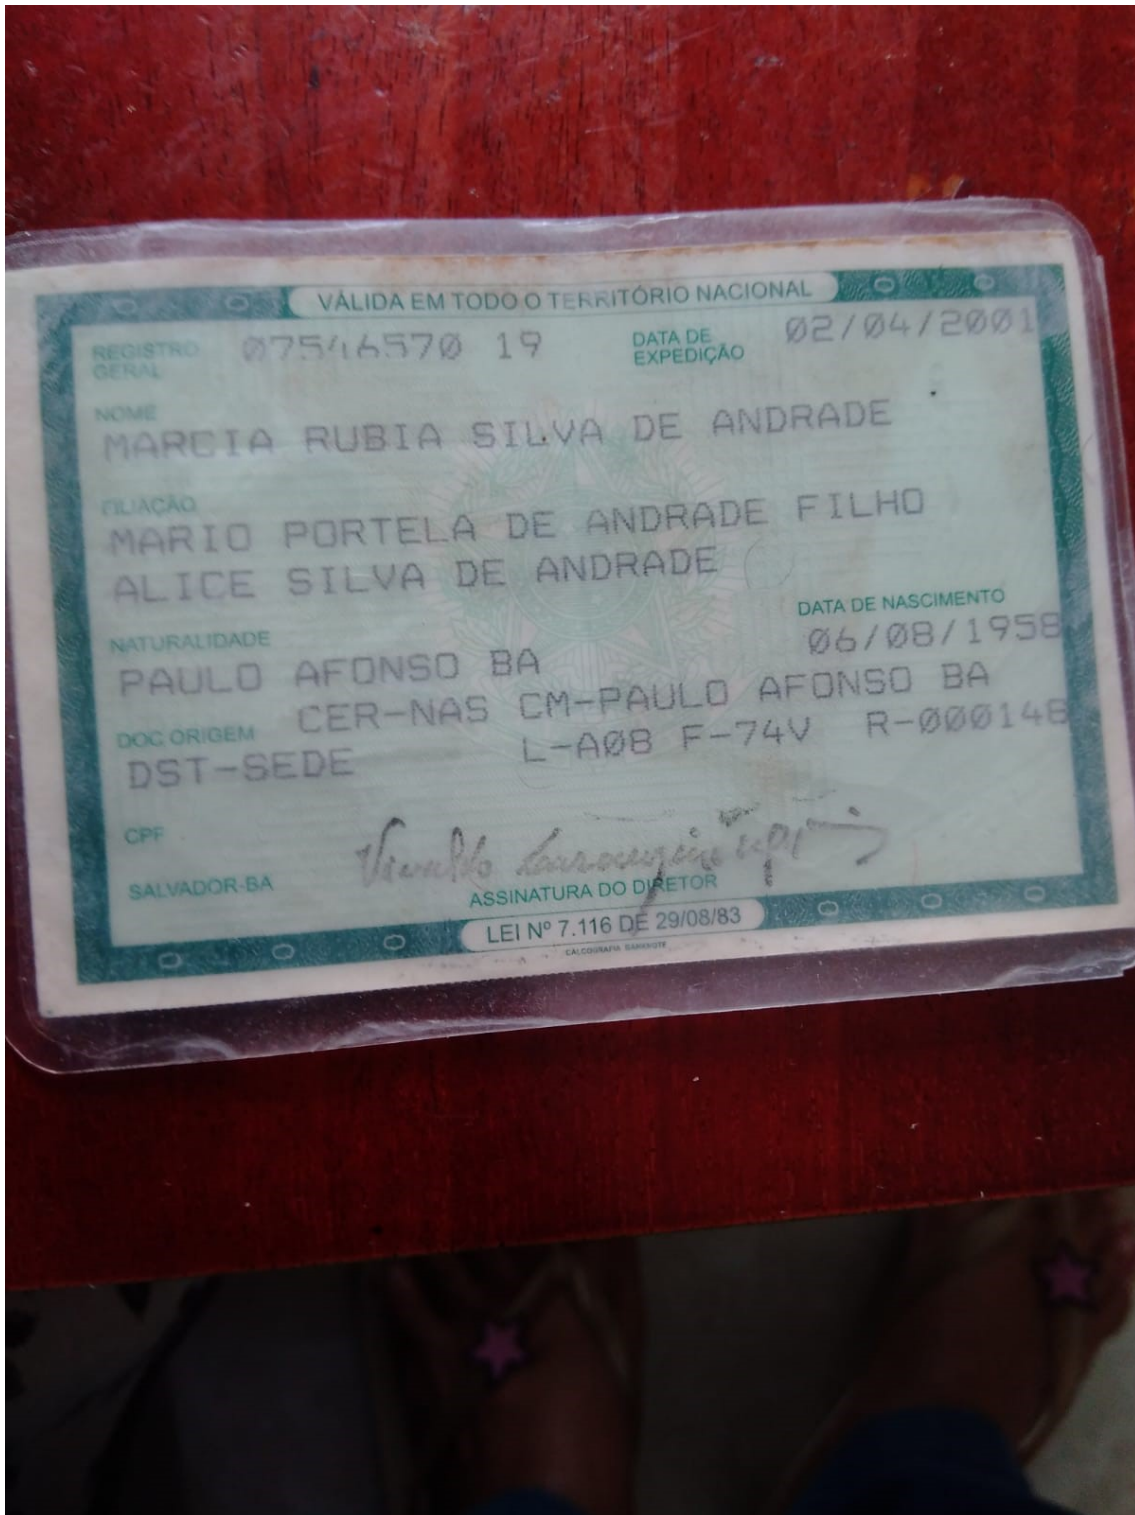 VÁLIDA EM TODO O TERRITÓRIO NACIONAL
REGISTRO GERAL 07546570 19 DATA DE EXPEDIÇÃO 02/04/2001
NOME
MARCIA RUBIA SILVA DE ANDRADE
FILIAÇÃO
MARIO PORTELA DE ANDRADE FILHO
ALICE SILVA DE ANDRADE
NATURALIDADE DATA DE NASCIMENTO
PAULO AFONSO BA 06/08/1958
DOC ORIGEM CER-NAS CM-PAULO AFONSO BA
DST-SEDE L-A08 F-74V R-000148
CPF
SALVADOR-BA
ASSINATURA DO DIRETOR
LEI Nº 7.116 DE 29/08/83
CALCOGRAFIA BANKNOTE